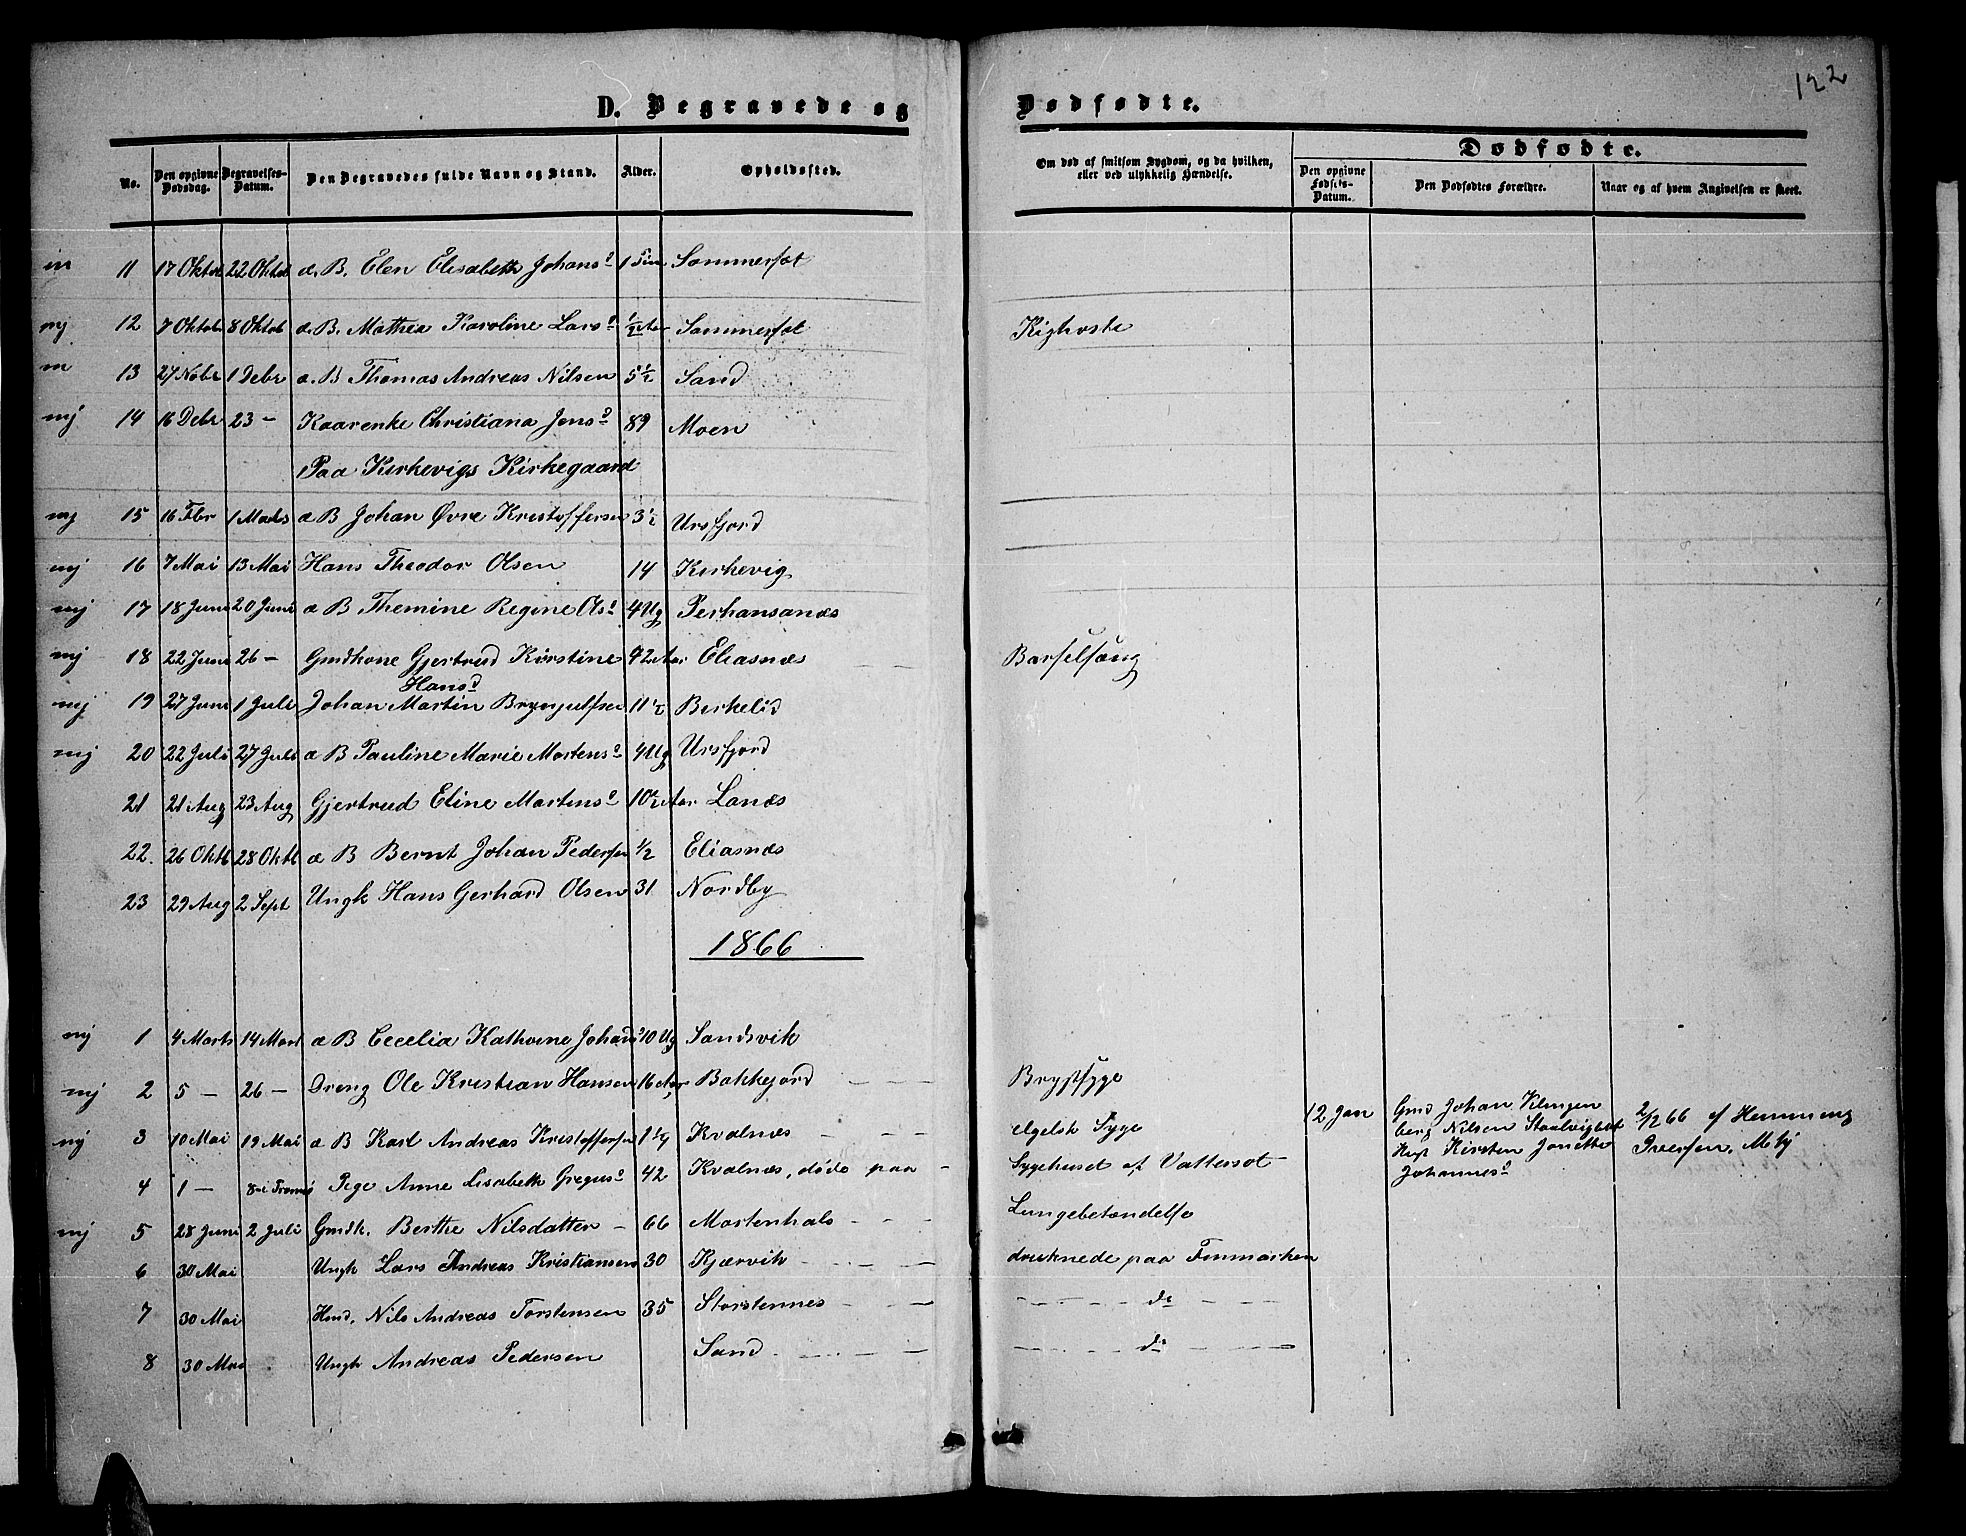 122
D. Begravede og Dødfødte.
No. Den opgivne Dødsdag. Begravelses-Datum. Den Begravedes fulde Navn og Stand. Alder. Opholdssted. Om død af smitsom Sygdom, og da hvilken, eller ved ulykkelig Hændelse. Dødfødte.
Den opgivne Fødsels-Datum. Den Dødfødtes Forældre. Naar og af hvem Angivelsen er skeet.
11 17 Oktob 22 Oktob d. B. Elen Elisabeth Johansd 1 Sommersæt
mj 12 7 Oktob 8 Oktob d. B. Mathea Karoline Larsd 1/2 Aar Sommersæt Kighoste
13 27 Nobr 1 Debr d B Thomas Andreas Nilsen 5 1/2 Sand
mj 14 16 Debr 23 - Kaarenke Christiana Jensd 89 Moen
Paa Kirkevigs Kirkegaard
mj 15 16 Fbr 1 Marts d B Johan Øvre Kristoffersen 3 1/2 Ursfjord
mj 16 7 Mai 13 Mai Hans Theodor Olsen 14 Kirkevig
mj 17 18 Juni 20 Juni d B Themine Regine Olsd 4 Ug Perhansanæs
mj 18 22 Juni 26 - Gmdkone Gjertrud Kirstine 42 Aar Eliasnæs Barselsæng
Hansd
mj 19 27 Juni 1 Juli Johan Martin Brynjulfsen 11 1/2 Birkelid
mj 20 22 Juli 27 Juli d B Pauline Marie Mortensd 4 Ug Ursfjord
21 21 Aug 23 Aug Gjertrud Eline Martensd 10 1/2 Aar Lanæs
22. 26 Oktb 28 Oktb d B Bernt Johan Pedersen 1/2 Eliasnæs
23 29 Aug 2 Sept Ungk Hans Gerhard Olsen 31 Nordby
1866
mj 1 4 Marts 14 Mart d B Cecelia Kathrine Johansd 10 Ug Sandsvik
mj 2 5 - 26 - Dreng Ole Kristian Hansen 16 Aar Bakkejord Brystsyge
mj 3 10 Mai 19 Mai d B Karl Andreas Kristoffersen 1 1/2 Kvalnæs engelsk Syge 12 Jan Gmd Johan Klingen
berg Nilsen Staalvigbot
Hust Kirsten Jonette
Johannesd
2/2 66 af Henning
Iversen, Mbj
4 1 - 8 Tromsø Pige Anne Lisabeth Gregusd 42 Kvalnæs, døde paa Sygehuset af Vattersot
mj 5 28 Juni 2 Juli Gmdk. Berthe Nilsdatter 66 Mortenhals Lungebetændelse
6 30 Mai Ungk Lars Andreas Kristiansen 30 Kjærvik druknede paa Finmarken
7 30 Mai Hmd. Nils Andreas Torstensen 35 Storstennes do
8 30 Mai Ungk Andreas Pedersen Sand do